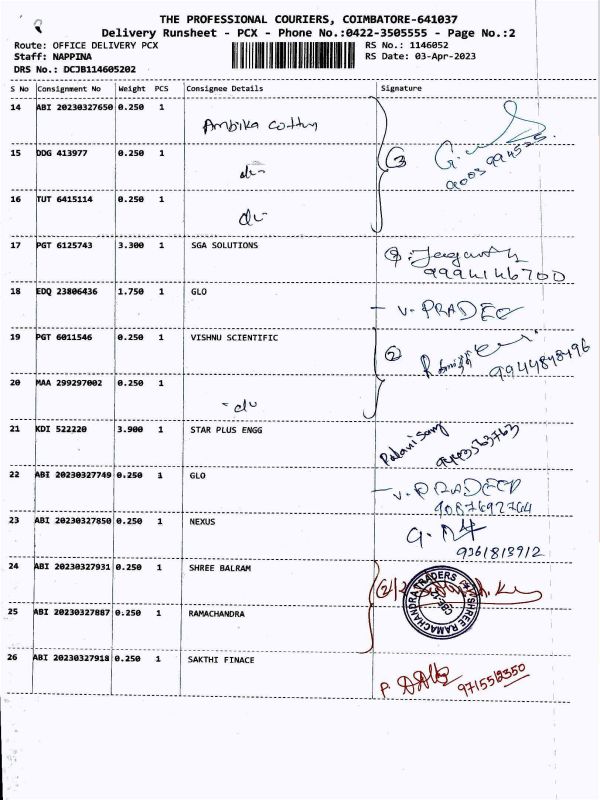 THE PROFESSIONAL COURIERS, COIMBATORE-641037
Delivery Runsheet - PCX - Phone No.:0422-3505555 - Page No.:2
Route: OFFICE DELIVERY PCX RS No.: 1146052
Staff: NAPPINA RS Date: 03-Apr-2023
DRS No.: DCJB114605202
S No Consignment No Weight PCS Consignee Details Signature
14 ABI 20230327650 0.250 1 Ambika cotton
15 DDG 413977 0.250 1 do
16 TUT 6415114 0.250 1 do
3 G.
17 PGT 6125743 3.300 1 SGA SOLUTIONS
9994146700
18 EDQ 23806436 1.750 1 GLO V. PRADEE
19 PGT 6011546 0.250 1 VISHNU SCIENTIFIC
2 9944848496
20 MAA 299297002 0.250 1 - do
21 KDI 522220 3.900 1 STAR PLUS ENGG Palanisamy
22 ABI 20230327749 0.250 1 GLO V. PRADEEP
9087692764
23 ABI 20230327850 0.250 1 NEXUS G.
9361813912
24 ABI 20230327931 0.250 1 SHREE BALRAM
SHREE RAMACHANDRA TRADERS
CBE
25 ABI 20230327887 0.250 1 RAMACHANDRA
26 ABI 20230327918 0.250 1 SAKTHI FINACE
P 9715562350